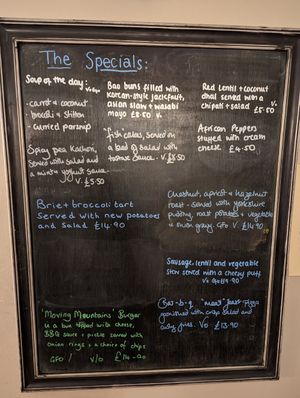 The Specials:
Soup of the day: v+gf
· carrot & coconut
· brocolli & stilton
· curried parsnip
Spicy pea kachori,
Served with salad and
a minty yoghurt sauce
V. £5.50
Bao buns filled with
Korean-style jackfruit,
asian slaw + wasabi
mayo £8.50 V.
fish cakes, served on
a bed of salad with
tartare sauce. V. £8.50
Red Lentil + coconut
dhal served with a
chipati + salad V.
£5.50
African Peppers
stuffed with cream
cheese. £4.50
Brie + broccoli tart
Served with new potatoes
and Salad £14.90
Chestnut, apricot & hazelnut
roast - served with yorkshire
pudding, roast potatoes + vegetable
& onion gravy. GFO V. £14.90
Sausage, lentil and vegetable
stew served with a cheesy puff
Bar-b-q "meat" feast Pizza
garnished with crisp salad and
curly fries. VO £13.90
'Moving Mountains' Burger
in a bun topped with cheese,
BBQ sauce + pickle served with
onion rings + a choice of chips
GFO / V/O £14.90